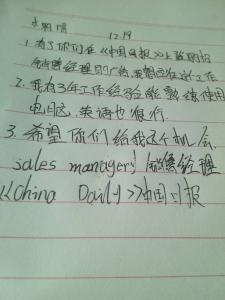 求职信 12.19
1.看了你们在《中国日报》上登的招
销售经理的广告,我想应征这个工作
2.我有3年工作经验能熟练使用
电脑,英语也很行.
3.希望你们给我这个机会.
sales managers 销售经理
《China Daily》中国日报